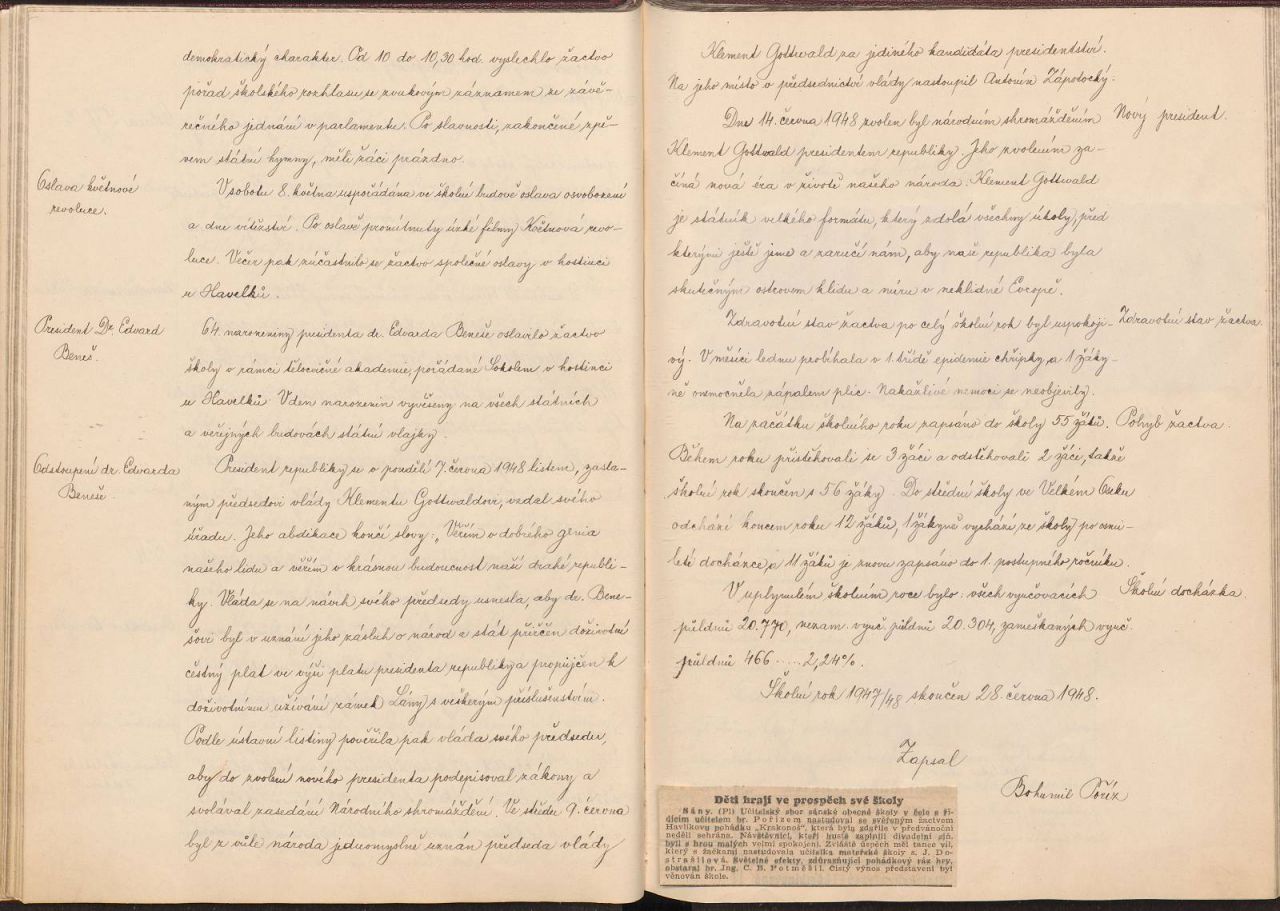 demokratický charakter. Od 10 do 10,30 hod. vyslechlo žactvo
pořad školského rozhlasu se zvukovým záznamem ze závě-
rečného jednání v parlamentu. Po slavnosti, zakončené zpě-
vem státní hymny, měli žáci prázdno.
Oslava květnové
revoluce.
V sobotu 8. května uspořádána ve školní budově oslava osvobození
a dne vítězství. Po oslavě promítnuty úzké filmy Květnová revo-
luce. Večer pak zúčastnilo se žactvo společné oslavy v hostinci
u Havelků.
President Dr. Edvard
Beneš.
64. narozeniny presidenta dr. Edvarda Beneše oslavilo žactvo
školy v rámci tělocvičné akademie, pořádané Sokolem v hostinci
u Havelků. V den narozenin vyvěšeny na všech státních
a veřejných budovách státní vlajky.
Odstoupení dr. Edvarda
Beneše.
President republiky se v pondělí 7. června 1948 listem, zasla-
ným předsedovi vlády Klementu Gottwaldovi, vzdal svého
úřadu. Jeho abdikace končí slovy: „Věřím v dobrého genia
našeho lidu a věřím v krásnou budoucnost naší drahé republi-
ky. Vláda se na návrh svého předsedy usnesla, aby dr. Bene-
šovi byl v uznání jeho zásluh o národ a stát přiřčen doživotní
čestný plat ve výši platu presidenta republiky a propůjčen k
doživotnímu užívání zámek Lány s veškerým příslušenstvím.
Podle ústavní listiny pověřila pak vláda svého předsedu,
aby do zvolení nového presidenta podepisoval zákony a
svolával zasedání Národního shromáždění. Ve středu 9. června
byl z vůle národa jednomyslně uznán předseda vlády
Klement Gottwald za jediného kandidáta presidentství.
Na jeho místo v předsednictví vlády nastoupil Antonín Zápotocký.
Nový president.
Dne 14. června 1948 zvolen byl národním shromážděním
Klement Gottwald presidentem republiky. Jeho zvolením za-
číná nová éra v životě našeho národa. Klement Gottwald
je státník velkého formátu, který zdolá všechny úkoly, před
kterými ještě jsme a zaručí nám, aby naše republika byla
skutečným ostrovem klidu a míru v neklidné Evropě.
Zdravotní stav žactva.
Zdravotní stav žactva po celý školní rok byl uspokoji-
vý. V měsíci lednu probíhala v 1. třídě epidemie chřipky a 1 žáky-
ně onemocněla zápalem plic. Nakažlivé nemoci se neobjevily.
Pohyb žactva.
Na začátku školního roku zapsáno do školy 55 žáků.
Během roku přistěhovali se 3 žáci a odstěhovali 2 žáci, takže
školní rok skončen s 56 žáky. Do střední školy ve Velkém Oseku
odchází koncem roku 12 žáků, 1 žákyně vychází ze školy po osmi-
leté docházce a 11 žáků je znovu zapsáno do 1. postupného ročníku.
Školní docházka
V uplynulém školním roce bylo: všech vyučovacích
půldnů 20.770, nezam. vyuč. půldnů 20.304, zameškaných vyuč.
půldnů 466 ..... 2,24%.
Školní rok 1947/48 skončen 28. června 1948.
Zapsal
Bohumil Poříz
Děti hrají ve prospěch své školy
Sány. (Pl) Učitelský sbor sánské obecné školy v čele s ří-
dícím učitelem br. Pořízem nastudoval se svěřeným žactvem
Havlíkovu pohádku „Krakonoš“, která byla zdařile v předvánoční
neděli sehrána. Návštěvníci, kteří hustě zaplnili divadelní síň,
byli s hrou malých velmi spokojeni. Zvláště úspěch měl tanec víl,
který s žačkami nastudovala učitelka mateřské školy s. J. Do-
strašilová. Světelné efekty, zdůrazňující pohádkový ráz hry,
obstaral br. Ing. C. B. Potměšil. Čistý výnos představení byl
věnován škole.